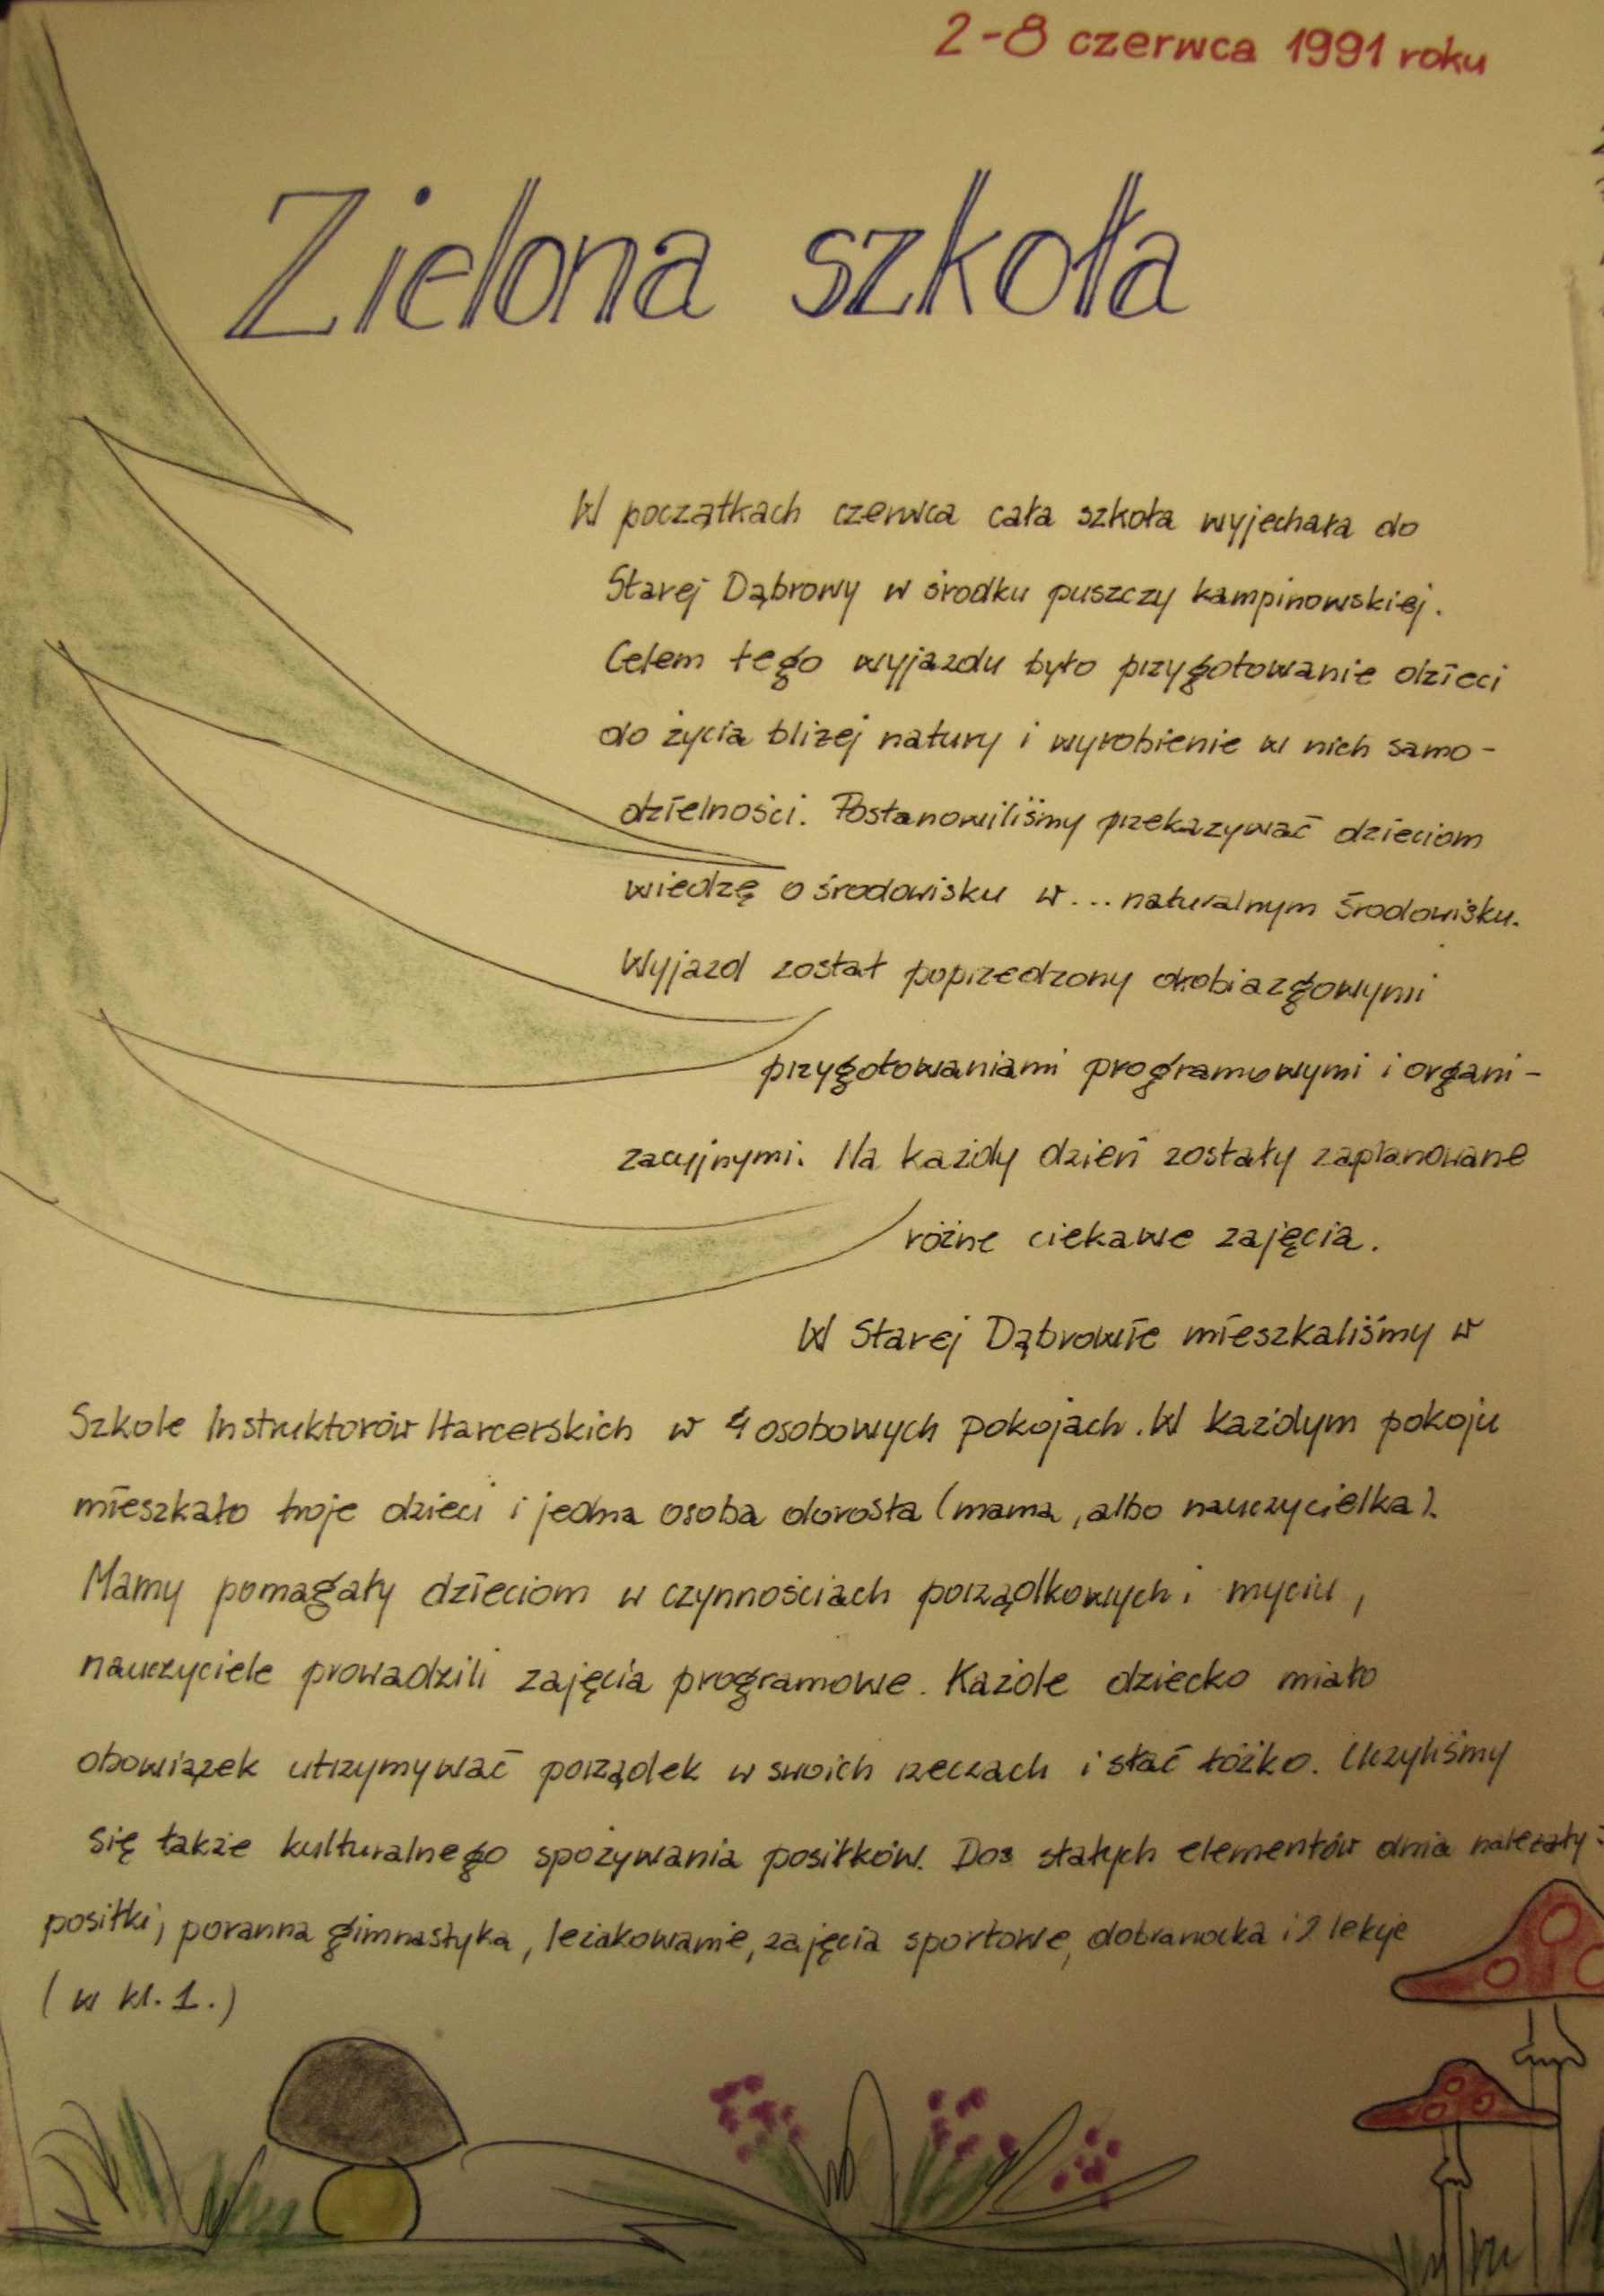 2-8 czerwca 1991 roku
Zielona szkoła
W początkach czerwca cała szkoła wyjechała do
Starej Dąbrowy w środku puszczy kampinowskiej.
Celem tego wyjazdu było przygotowanie dzieci
do życia bliżej natury i wyrobienie w nich samo-
dzielności. Postanowiliśmy przekazywać dzieciom
wiedzę o środowisku w... naturalnym środowisku.
Wyjazd został poprzedzony drobiazgowymi
przygotowaniami programowymi i organi-
zacyjnymi. Na każdy dzień zostały zaplanowane
różne ciekawe zajęcia.
W Starej Dąbrowie mieszkaliśmy w
Szkole Instruktorów Harcerskich w 4 osobowych pokojach. W każdym pokoju
mieszkało troje dzieci i jedna osoba dorosła (mama, albo nauczycielka).
Mamy pomagały dzieciom w czynnościach porządkowych i myciu,
nauczyciele prowadzili zajęcia programowe. Każde dziecko miało
obowiązek utrzymywać porządek w swoich rzeczach i słać łóżko. Uczyliśmy
się także kulturalnego spożywania posiłków. Do stałych elementów dnia należały:
posiłki, poranna gimnastyka, leżakowanie, zajęcia sportowe, dobranocka i 2 lekcje
(w kl. 1.)